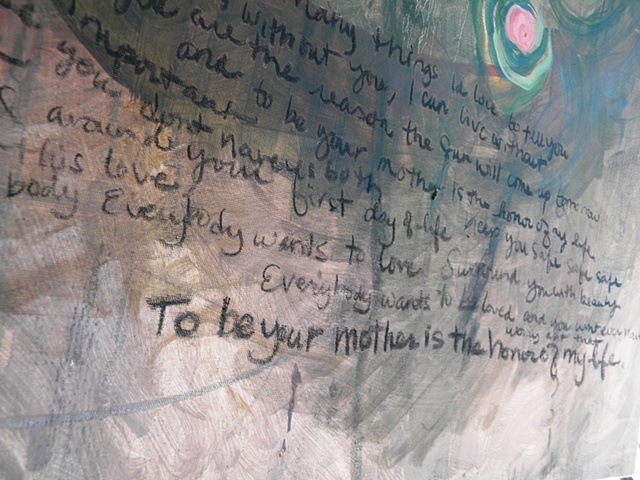 many things id love to tell you
without you, I can live without
you are the reason the sun will come up tomorrow
important and to be your mother is the honor of my life
you dont have both keep you safe safe safe
around your first day of life Surround you with beauty
this love
body Everybody wants to love
Everybody wants to be loved and you wont ever have
worry abt that
To be your mother is the honor of my life.